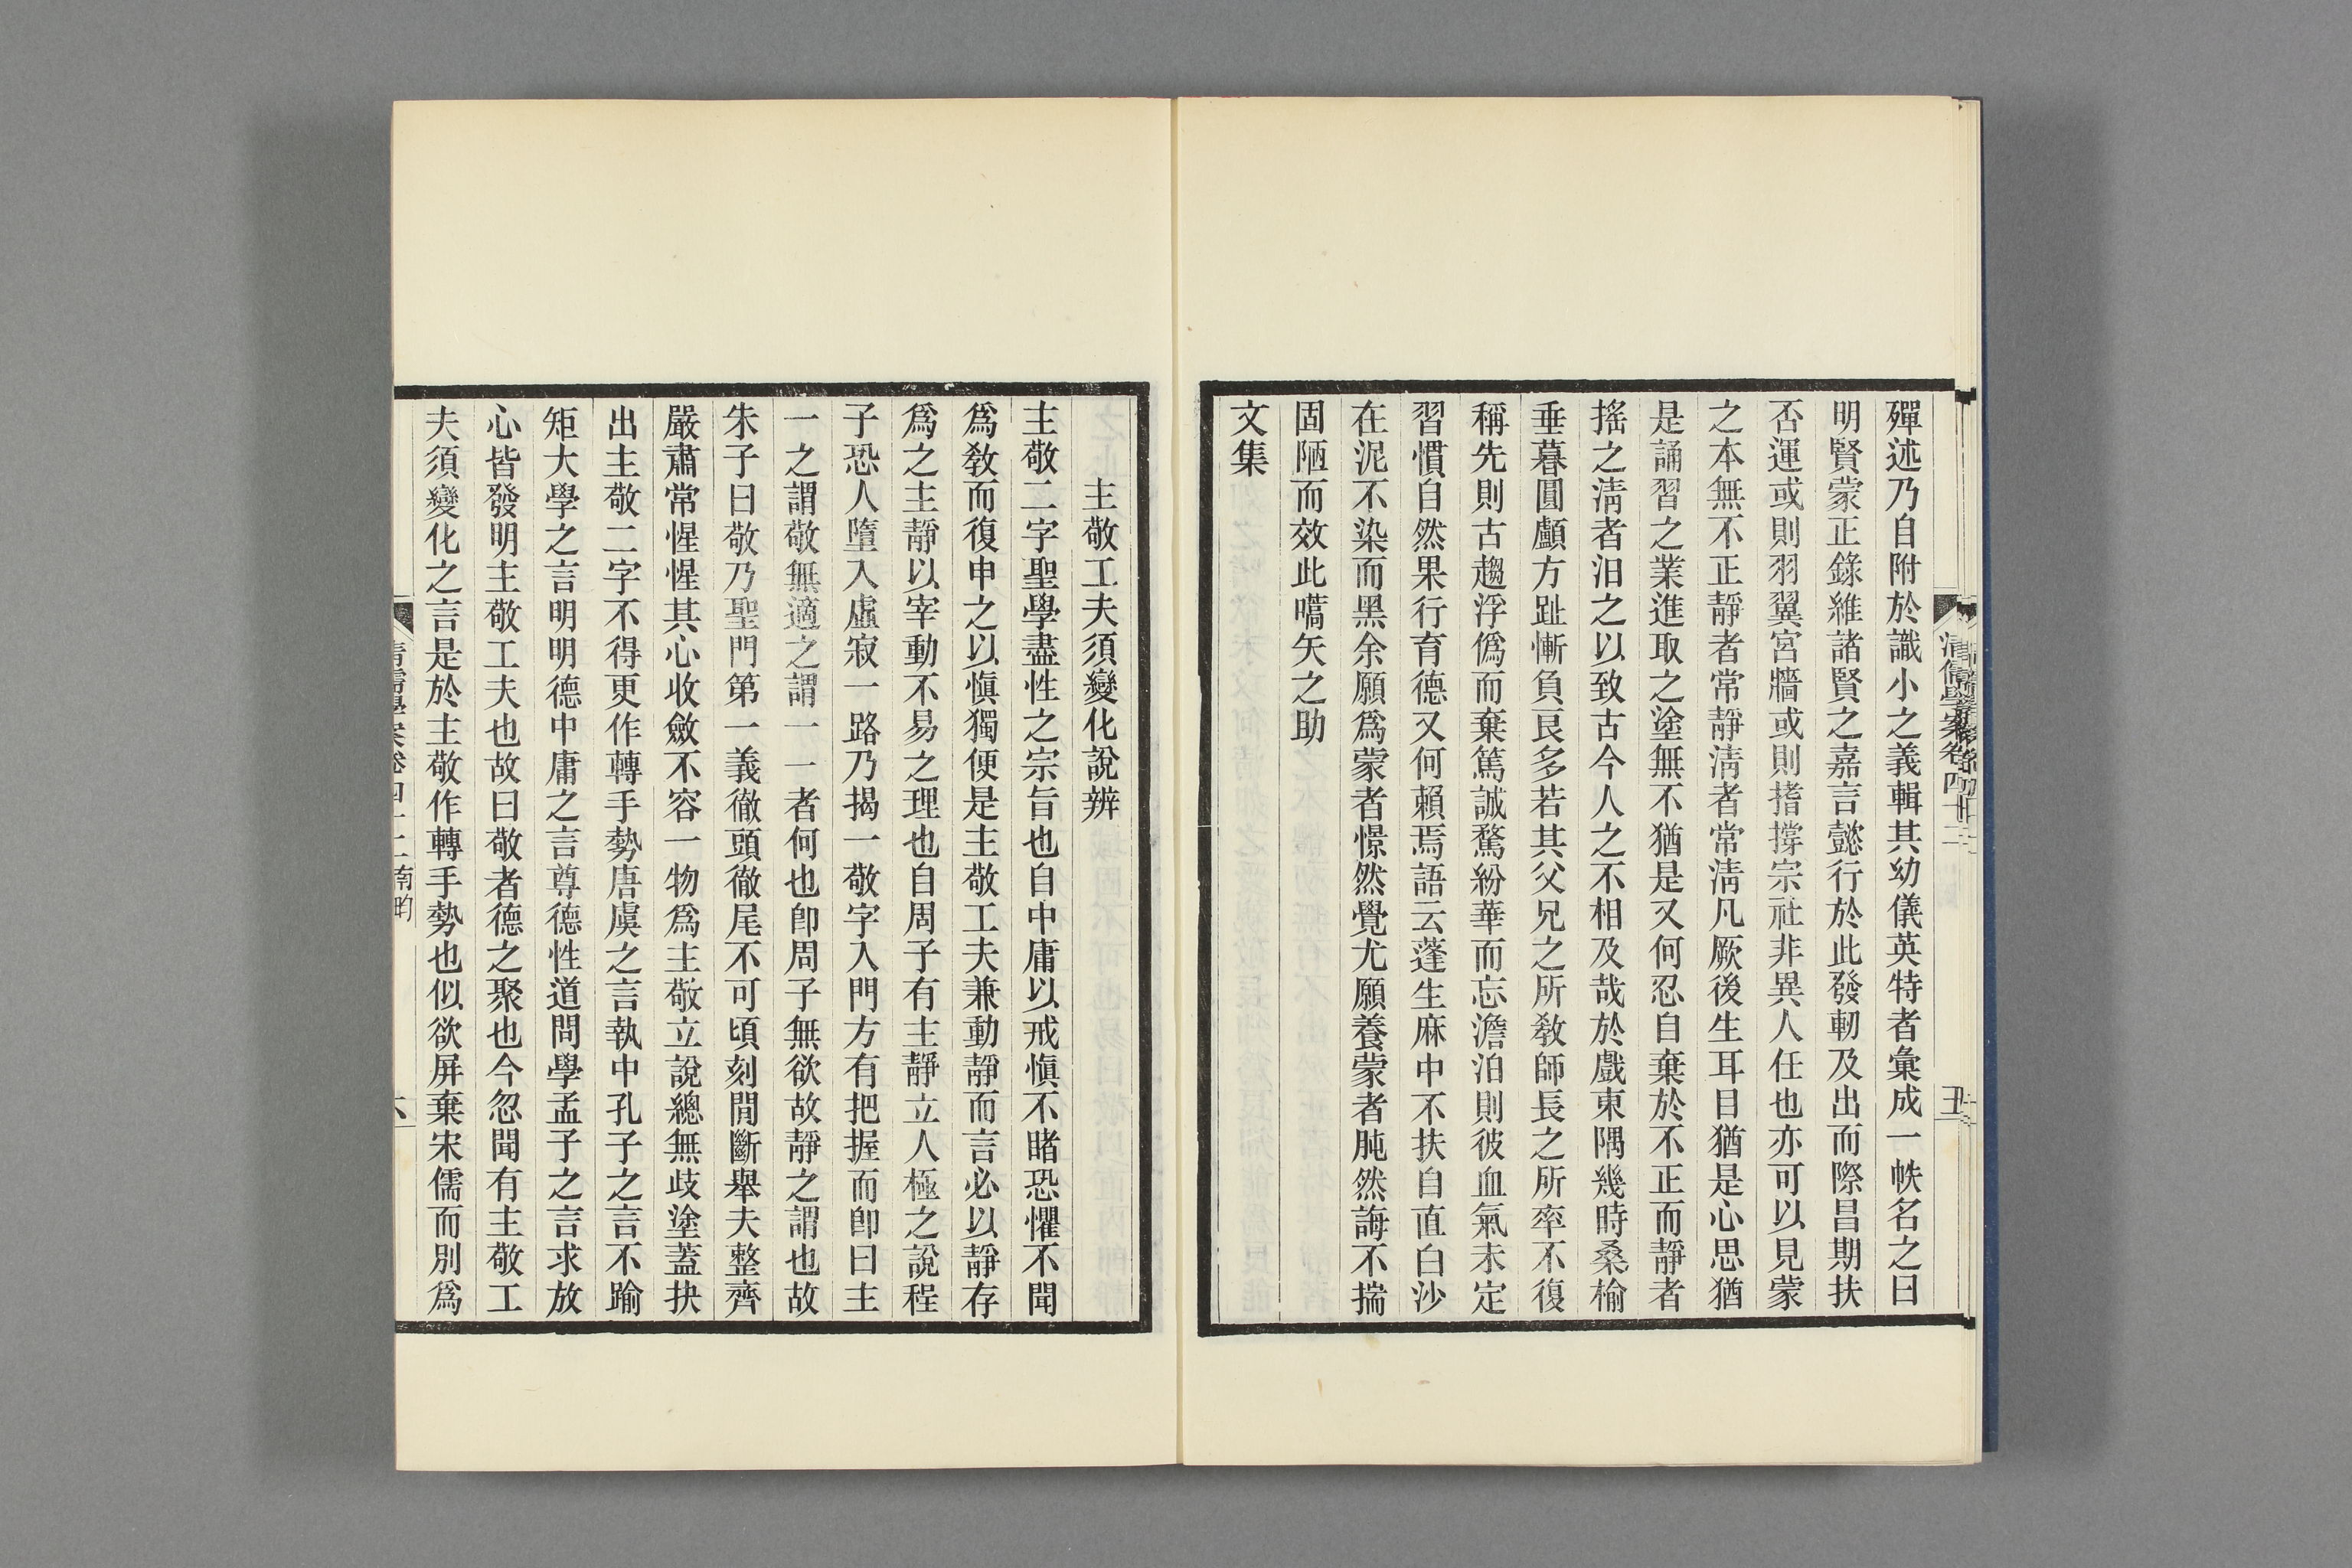 殫述乃自附於識小之義輯其幼儀英特者彙成一帙名之曰
明賢蒙正錄維諸賢之嘉言懿行於此發軔及出而際昌期扶
否運或則羽翼宮牆或則搘撐宗社非異人任也亦可以見蒙
之本無不正靜者常靜清者常清凡厥後生耳目猶是心思猶
是誦習之業進取之塗無不猶是又何忍自棄於不正而靜者
搖之清者汨之以致古今人之不相及哉於戲東隅幾時桑榆
垂暮圓顱方趾慚負艮多若其父兄之所敎師長之所率不復
稱先則古趨浮僞而棄篤誠騖紛華而忘澹泊則彼血氣未定
習慣自然果行育德又何賴焉語云蓬生麻中不扶自直白沙
在泥不染而黑余願爲蒙者憬然覺尤願養蒙者肫然誨不揣
固陋而效此嚆矢之助
文集
主敬工夫須變化說辨
主敬二字聖學盡性之宗旨也自中庸以戒愼不睹恐懼不聞
爲敎而復申之以愼獨便是主敬工夫兼動靜而言必以靜存
爲之主靜以宰動不易之理也自周子有主靜立人極之說程
子恐人墮入虛寂一路乃揭一敬字入門方有把握而卽曰主
一之謂敬無適之謂一一者何也卽周子無欲故靜之謂也故
朱子曰敬乃聖門第一義徹頭徹尾不可頃刻閒斷舉夫整齊
嚴肅常惺惺其心收斂不容一物爲主敬立說總無歧塗蓋抉
出主敬二字不得更作轉手勢唐虞之言執中孔子之言不踰
矩大學之言明明德中庸之言尊德性道問學孟子之言求放
心皆發明主敬工夫也故曰敬者德之聚也今忽聞有主敬工
夫須變化之言是於主敬作轉手勢也似欲屏棄宋儒而別爲
清儒學案卷四十二南畇
六